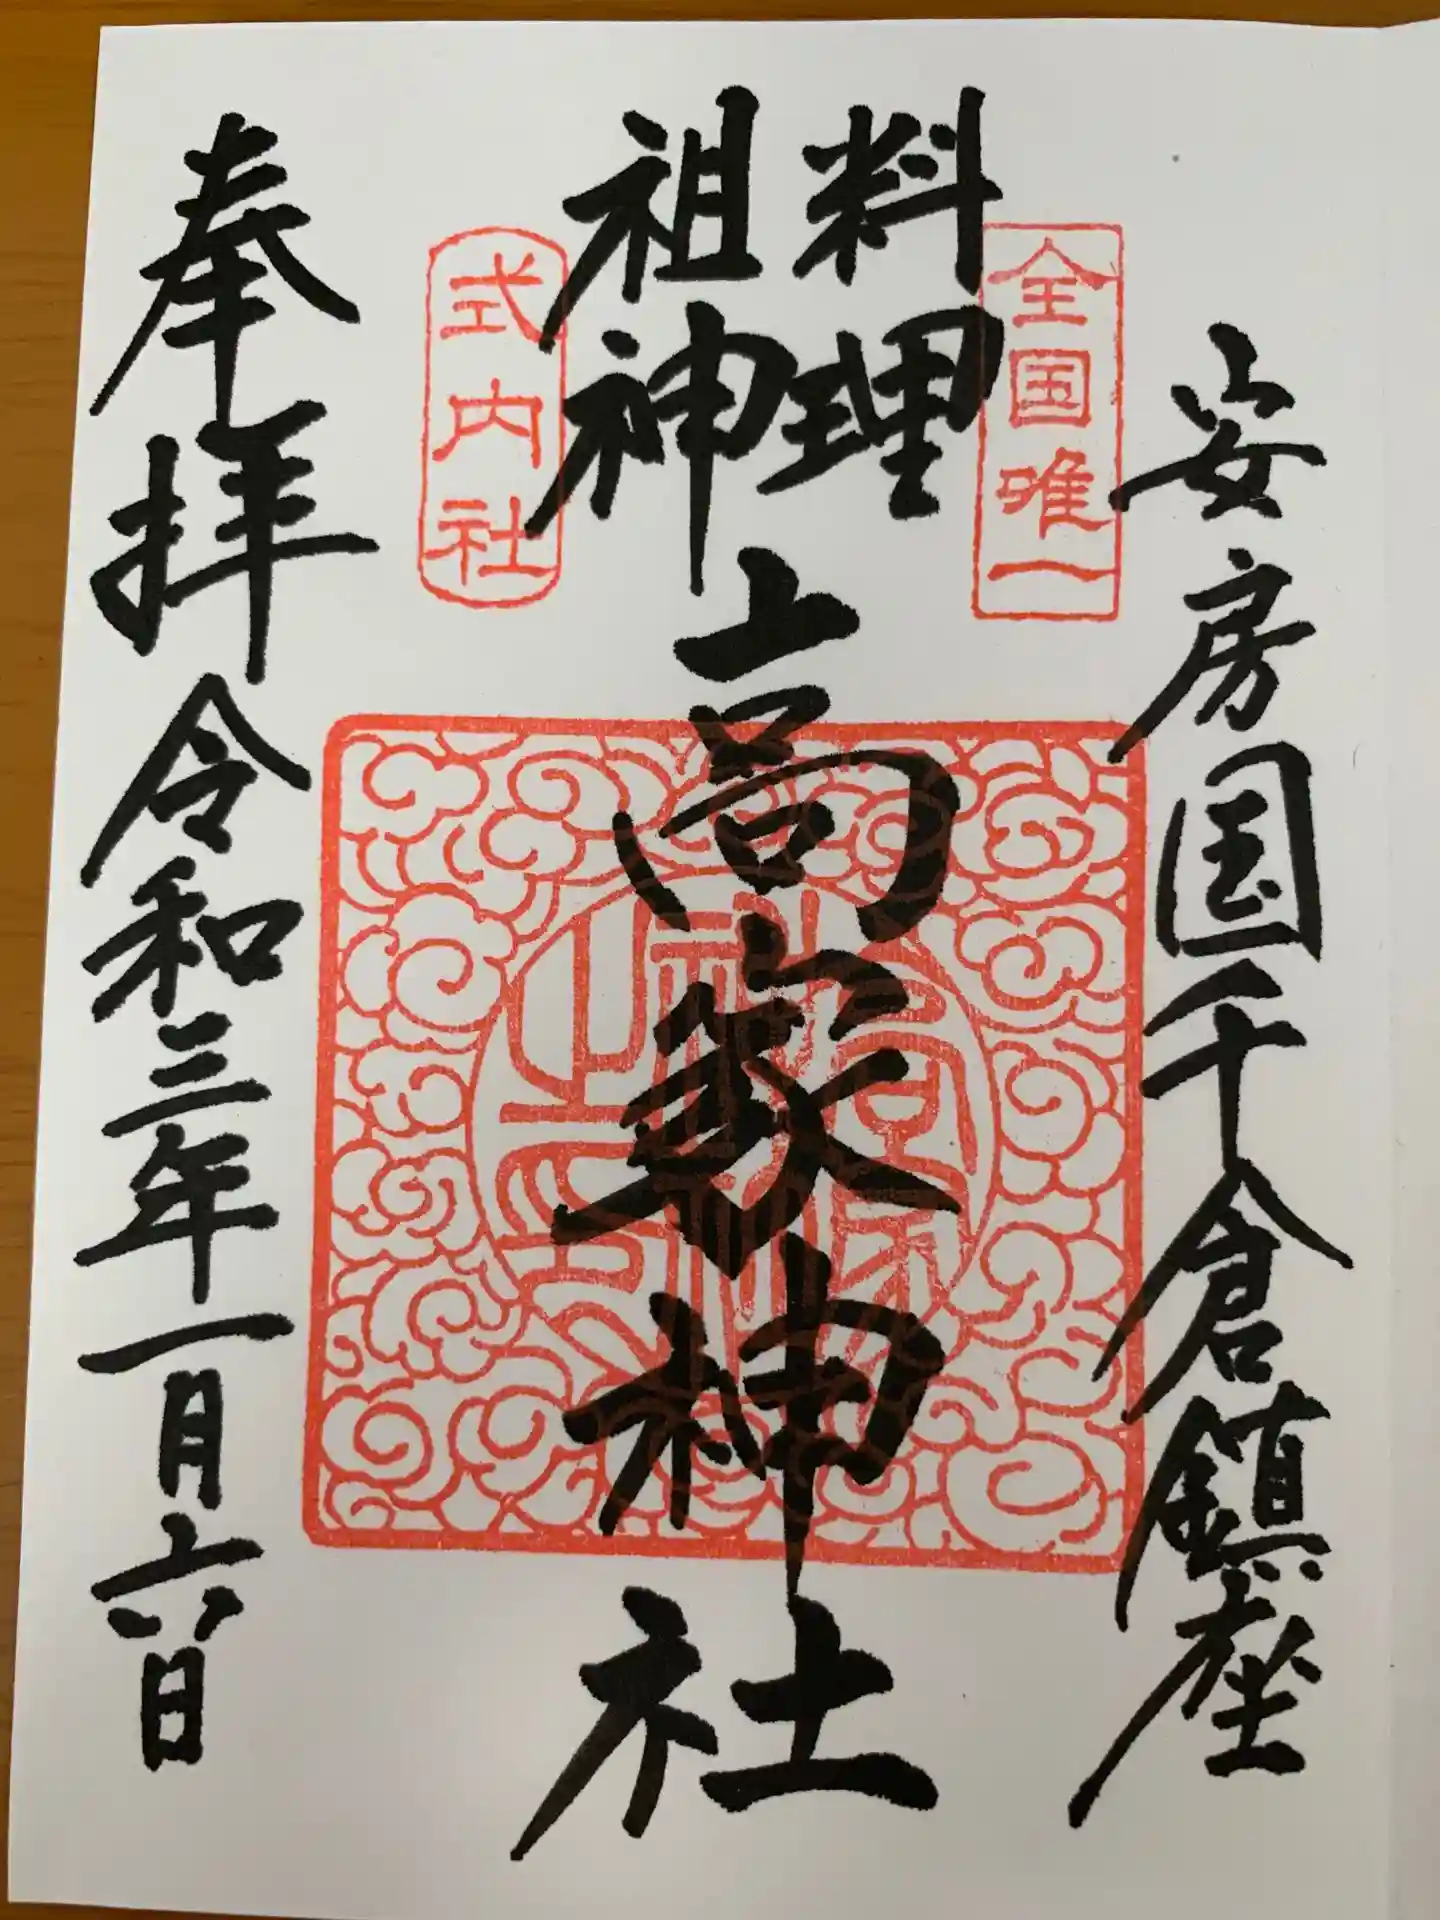 安房国千倉鎮座
全国唯一
料理
祖神
高家神社
式内社
奉拝
令和三年一月六日